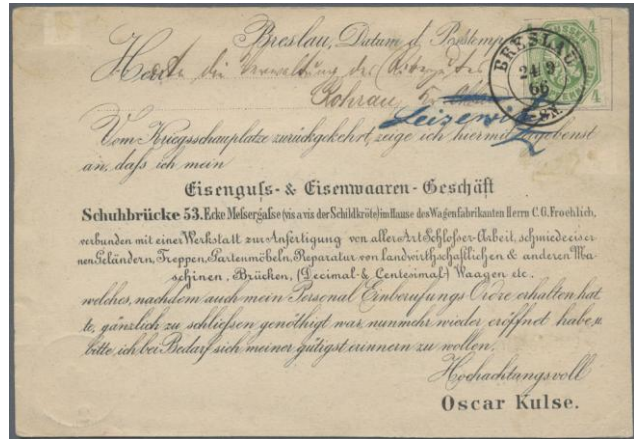 Breslau, Datum d. Poststemp
BRESLAU
24 9
66
4
4
die Verwaltung des
Rohrau
Vom Kriegsschauplatze zurückgekehrt, zeige ich hiermit ergebenst
an, daſs ich mein
Eisenguſs- & Eisenwaaren-Geschäft
Schuhbrücke 53. Ecke Meſsergaſse (vis a vis der Schildkröte) im Hause des Wagenfabrikanten Herrn C. G. Froehlich,
verbunden mit einer Werkstatt zur Anfertigung von aller Art Schloſser-Arbeit, schmiedeeiser
nen Geländern, Treppen, Gartenmöbeln, Reparatur von landwirthschaftlichen & anderen Ma-
schinen, Brücken, (Decimal- & Centesimal) Waagen etc.
welches, nachdem auch mein Personal Einberufungs Ordre erhalten hat
te, gänzlich zu schlieſsen genöthigt war, nunmehr wieder eröffnet habe, u.
bitte, ich bei Bedarf sich meiner gütigst erinnern zu wollen.
Hochachtungsvoll
Oscar Kulse.